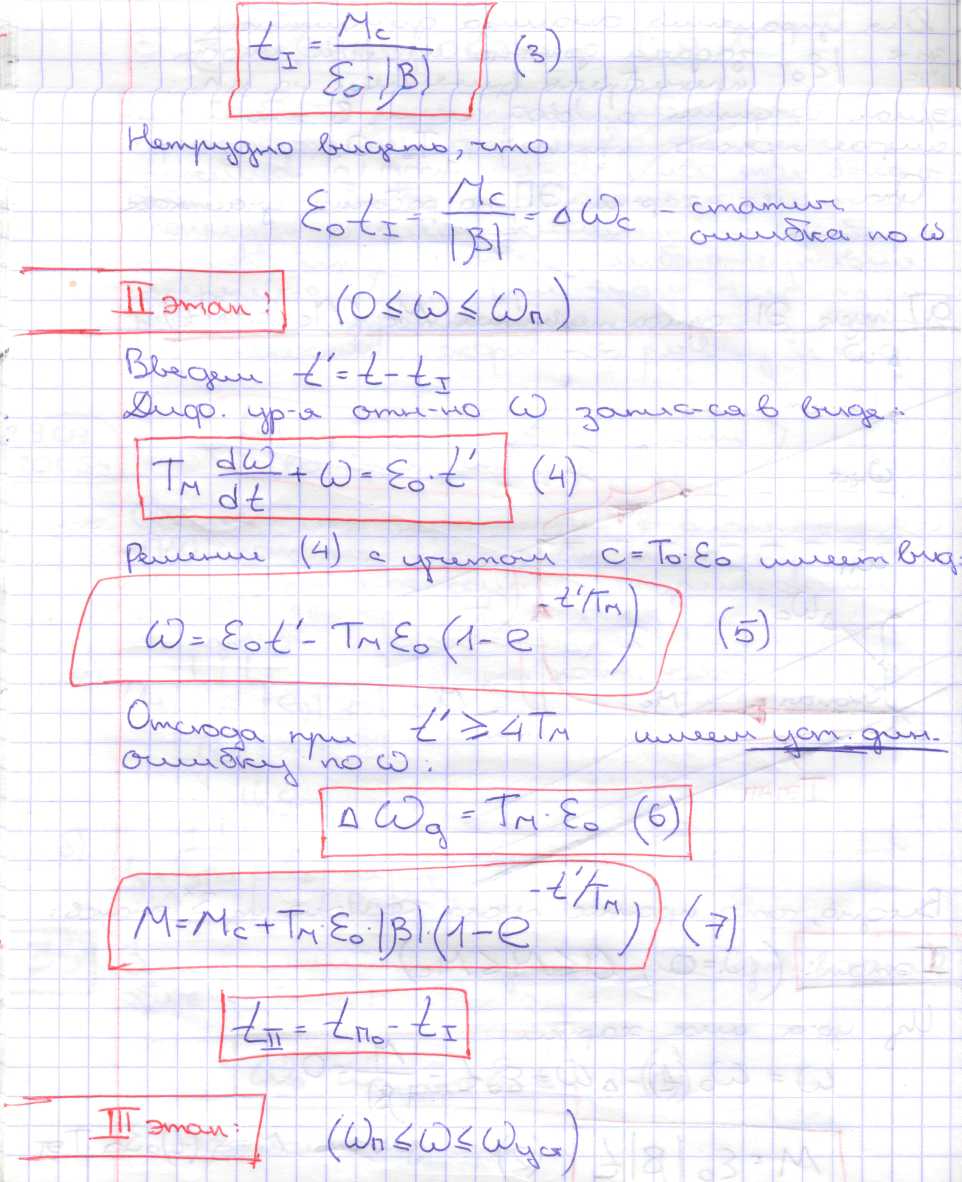 t_I = M_c / (ε₀·|β|) (3)
Нетрудно видеть, что
ε₀t_I = M_c / |β| = Δω_c – статич.
ошибка по ω
II этап: (0 ≤ ω ≤ ω_п)
Введем t' = t - t_I
Диф. ур-я отн-но ω запис-ся в виде:
T_м dω/dt + ω = ε₀·t' (4)
Решение (4) с учетом c = T₀·ε₀ имеет вид:
ω = ε₀t' - T_м ε₀ (1 - e^(-t'/T_м)) (5)
Отсюда при t' ⩾ 4T_м имеем уст. дин.
ошибку по ω:
Δω_д = T_м·ε₀ (6)
M = M_c + T_м·ε₀·|β|·(1 - e^(-t'/T_м)) (7)
t_II = t_п₀ - t_I
III этап: (ω_п ≤ ω ≤ ω_уст)